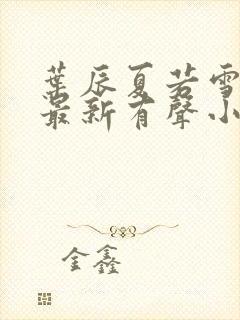 葉辰夏若雪
最新有聲小
金鑫